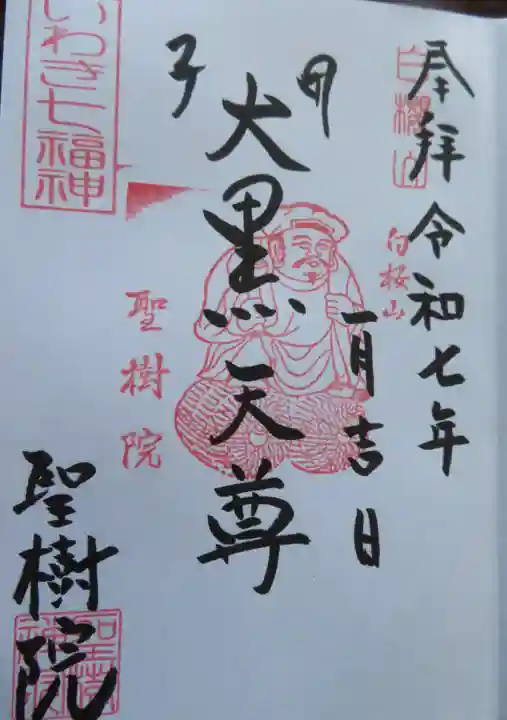 奉拝
令和七年
一月吉日
白桜山
大黒天尊
聖樹院
いわき七福神
聖樹院